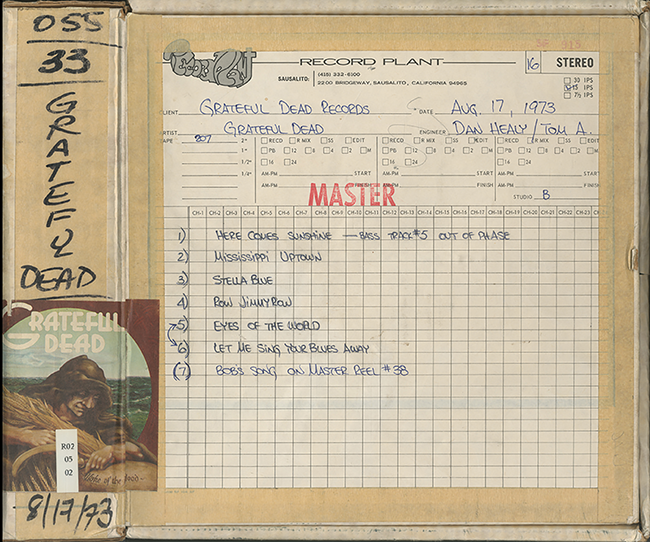 055
33
GRATEFUL
DEAD
GRATEFUL
DEAD
R02
05
02
8/17/73
Record Plant
RECORD PLANT
SAUSALITO: (415) 332-6100
2200 BRIDGEWAY, SAUSALITO, CALIFORNIA 94965
16 STEREO
30 IPS
15 IPS
7½ IPS
CLIENT GRATEFUL DEAD RECORDS DATE AUG. 17, 1973
ARTIST GRATEFUL DEAD ENGINEER DAN HEALY/TOM A.
TAPE 207 2" RECD R MIX SS EDIT RECD R MIX SS EDIT RECD R MIX SS EDIT
1" PB 12 8 4 2 M PB 12 8 4 2 M PB 12 8 4 2 M
1/2" 16 24 16 24 16 24
1/4" AM-PM START AM-PM START AM-PM START
AM-PM FINISH AM-PM FINISH AM-PM FINISH
MASTER
STUDIO B
CH-1 CH-2 CH-3 CH-4 CH-5 CH-6 CH-7 CH-8 CH-9 CH-10 CH-11 CH-12 CH-13 CH-14 CH-15 CH-16 CH-17 CH-18 CH-19 CH-20 CH-21 CH-22 CH-23
1) HERE COMES SUNSHINE — BASS TRACK #5 OUT OF PHASE
2) MISSISSIPPI UPTOWN
3) STELLA BLUE
4) ROW JIMMY ROW
5) EYES OF THE WORLD
6) LET ME SING YOUR BLUES AWAY
(7) BOB'S SONG ON MASTER REEL #38